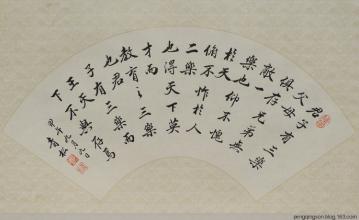 君子有三樂
父母
俱存兄弟無
故一
樂也仰不愧
於天
俯不怍於人
二樂
也得天下英
才而
教育之三樂
也君
子有三樂而
王天
下不與存焉
甲午九月九日
青松
pengqingson.blog.163.com